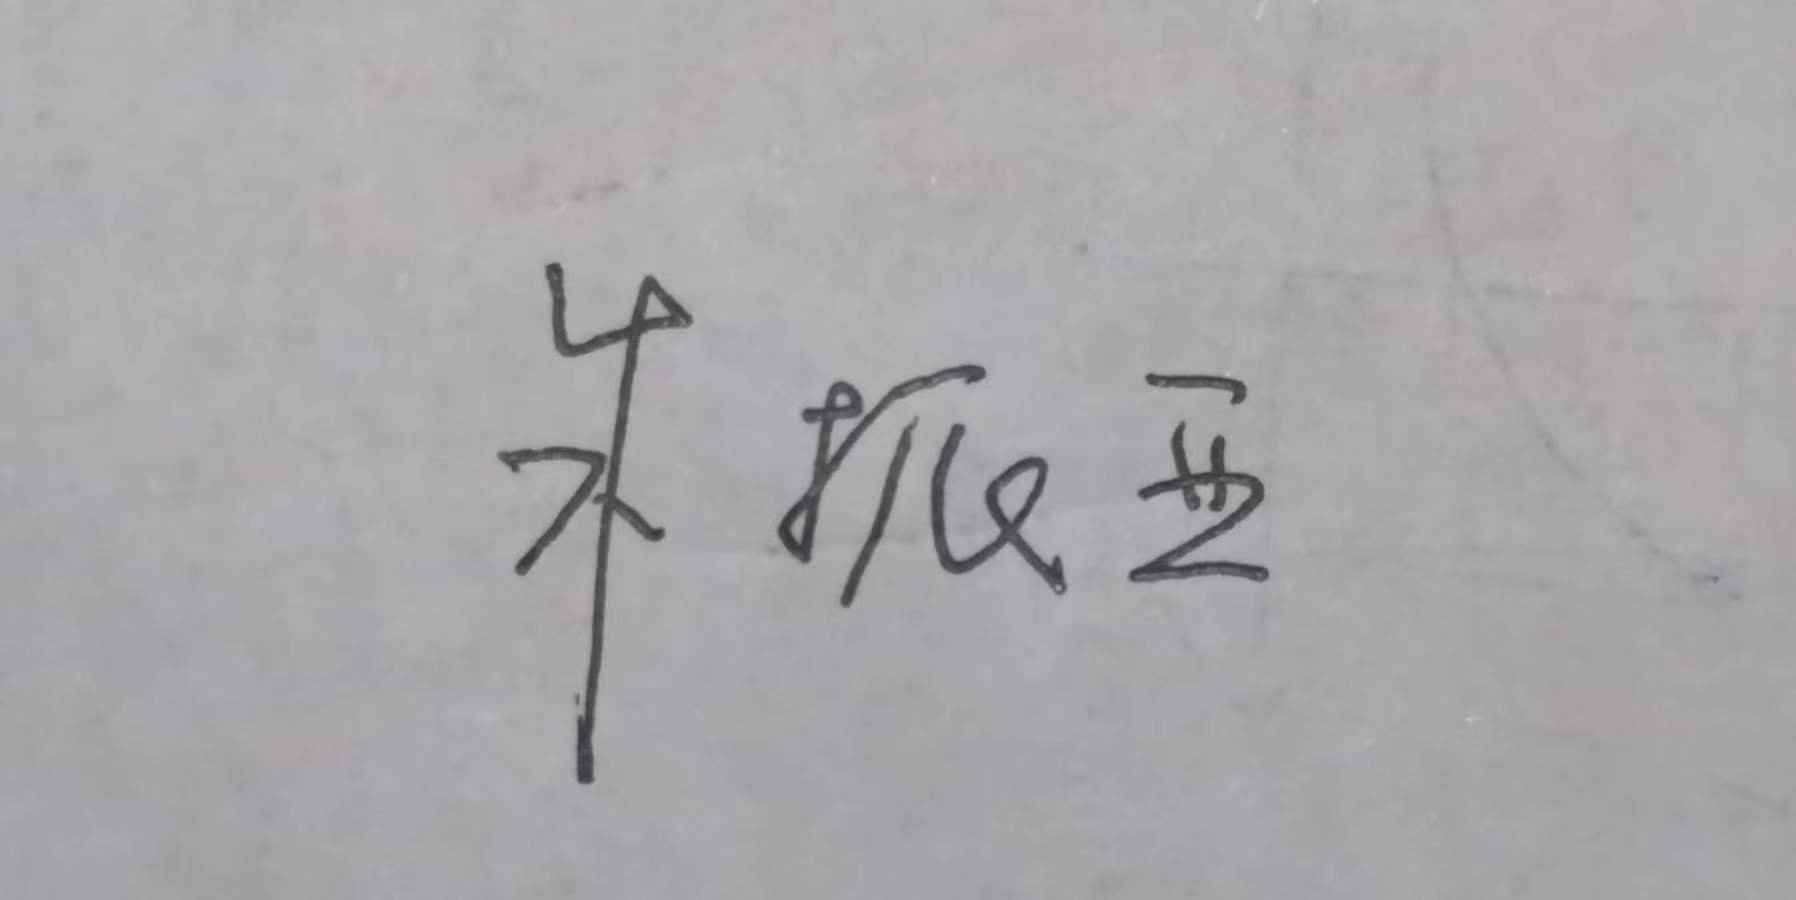 朱振亚